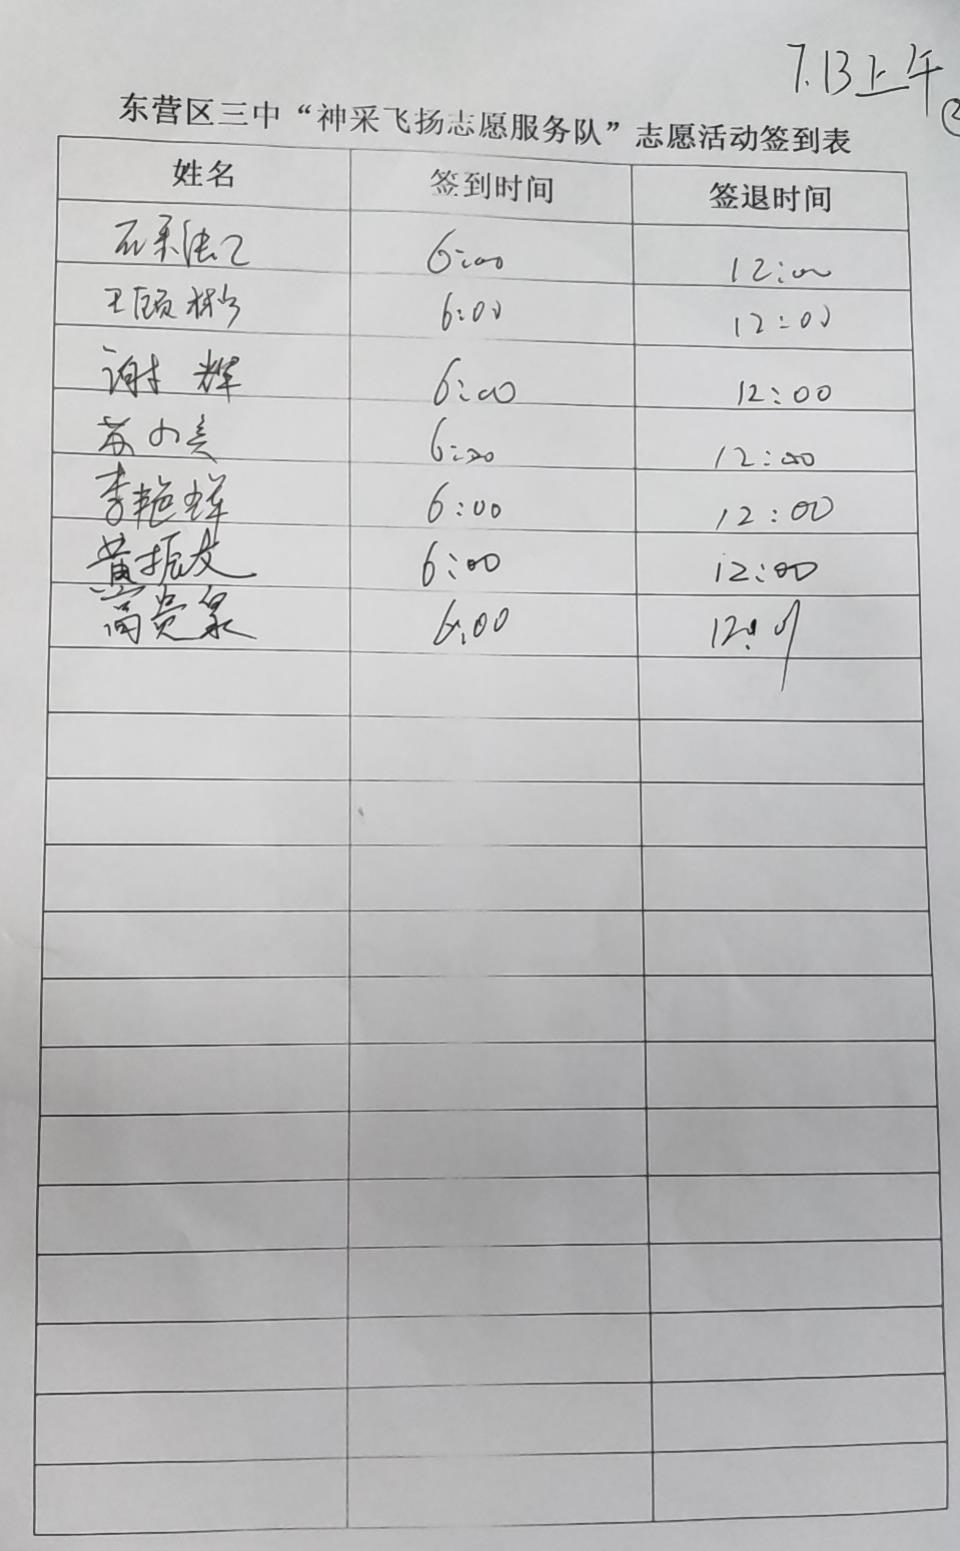 7.13上午
②
东营区三中“神采飞扬志愿服务队”志愿活动签到表
姓名 签到时间 签退时间
6:00 12:00
王颐彬 6:00 12:00
谢辉 6:00 12:00
苏小美 6:00 12:00
李艳辉 6:00 12:00
黄振友 6:00 12:00
高贵泉 6:00